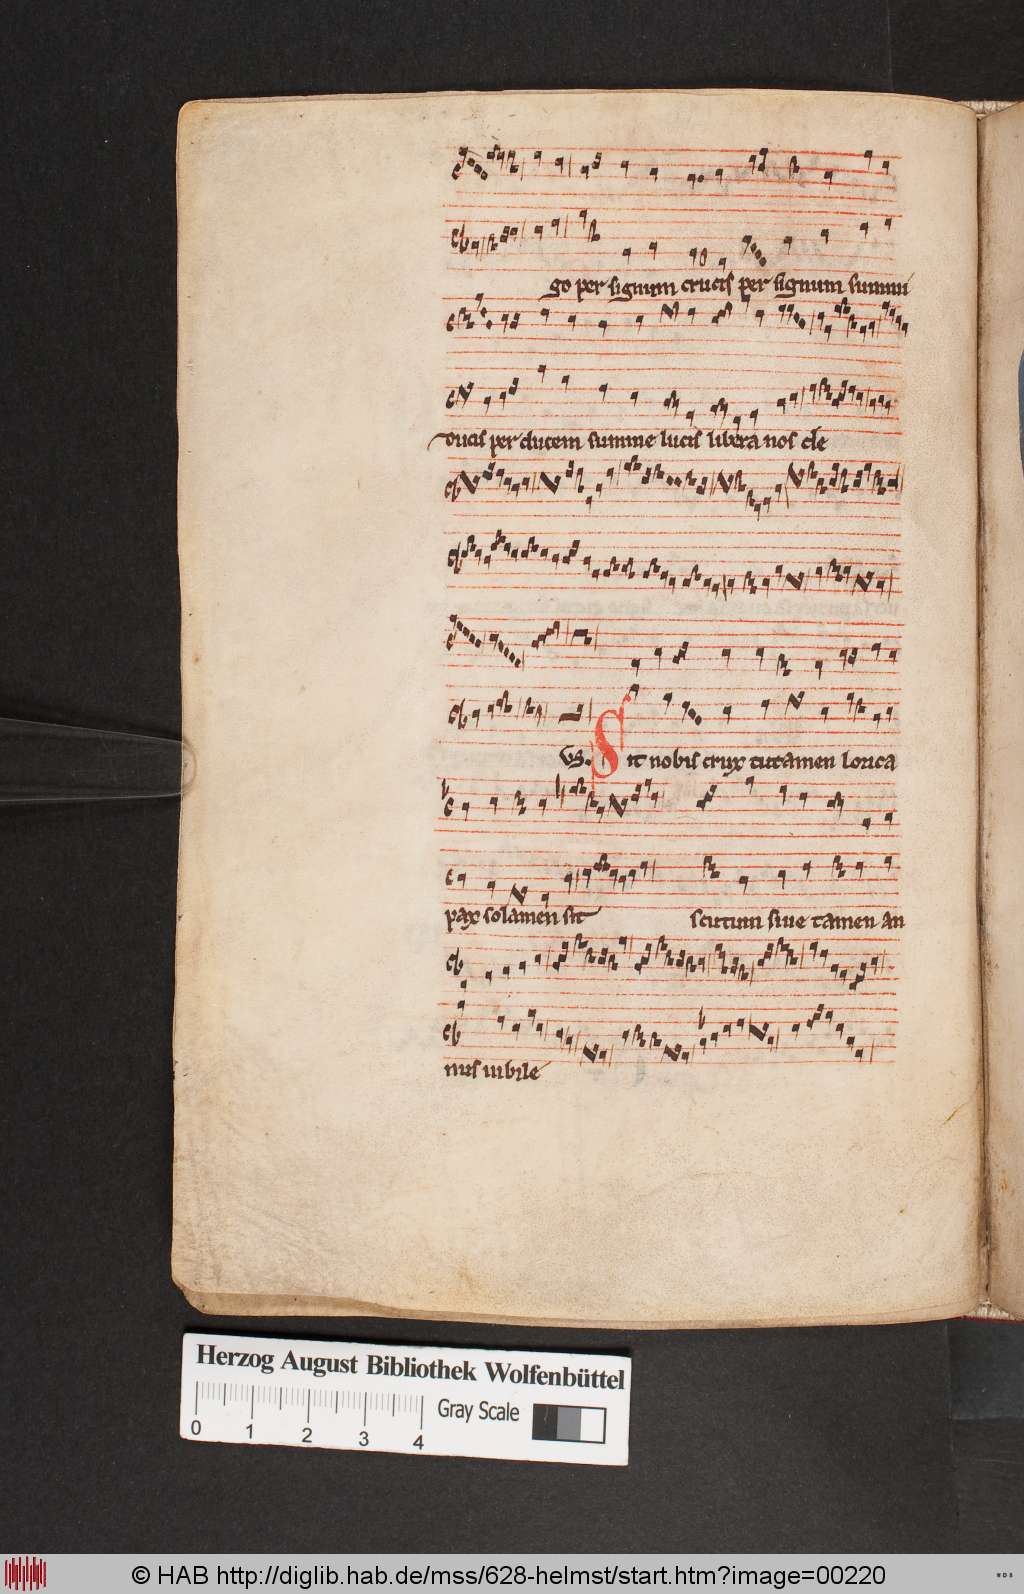 go per signum crucis per signum summi
ducis per ducem summe lucis libera nos de
Vs. Sit nobis crux tutamen lorica
pax solamen sit scutum siue tamen an
nus iubile
Herzog August Bibliothek Wolfenbüttel
Gray Scale
0 1 2 3 4
© HAB http://diglib.hab.de/mss/628-helmst/start.htm?image=00220